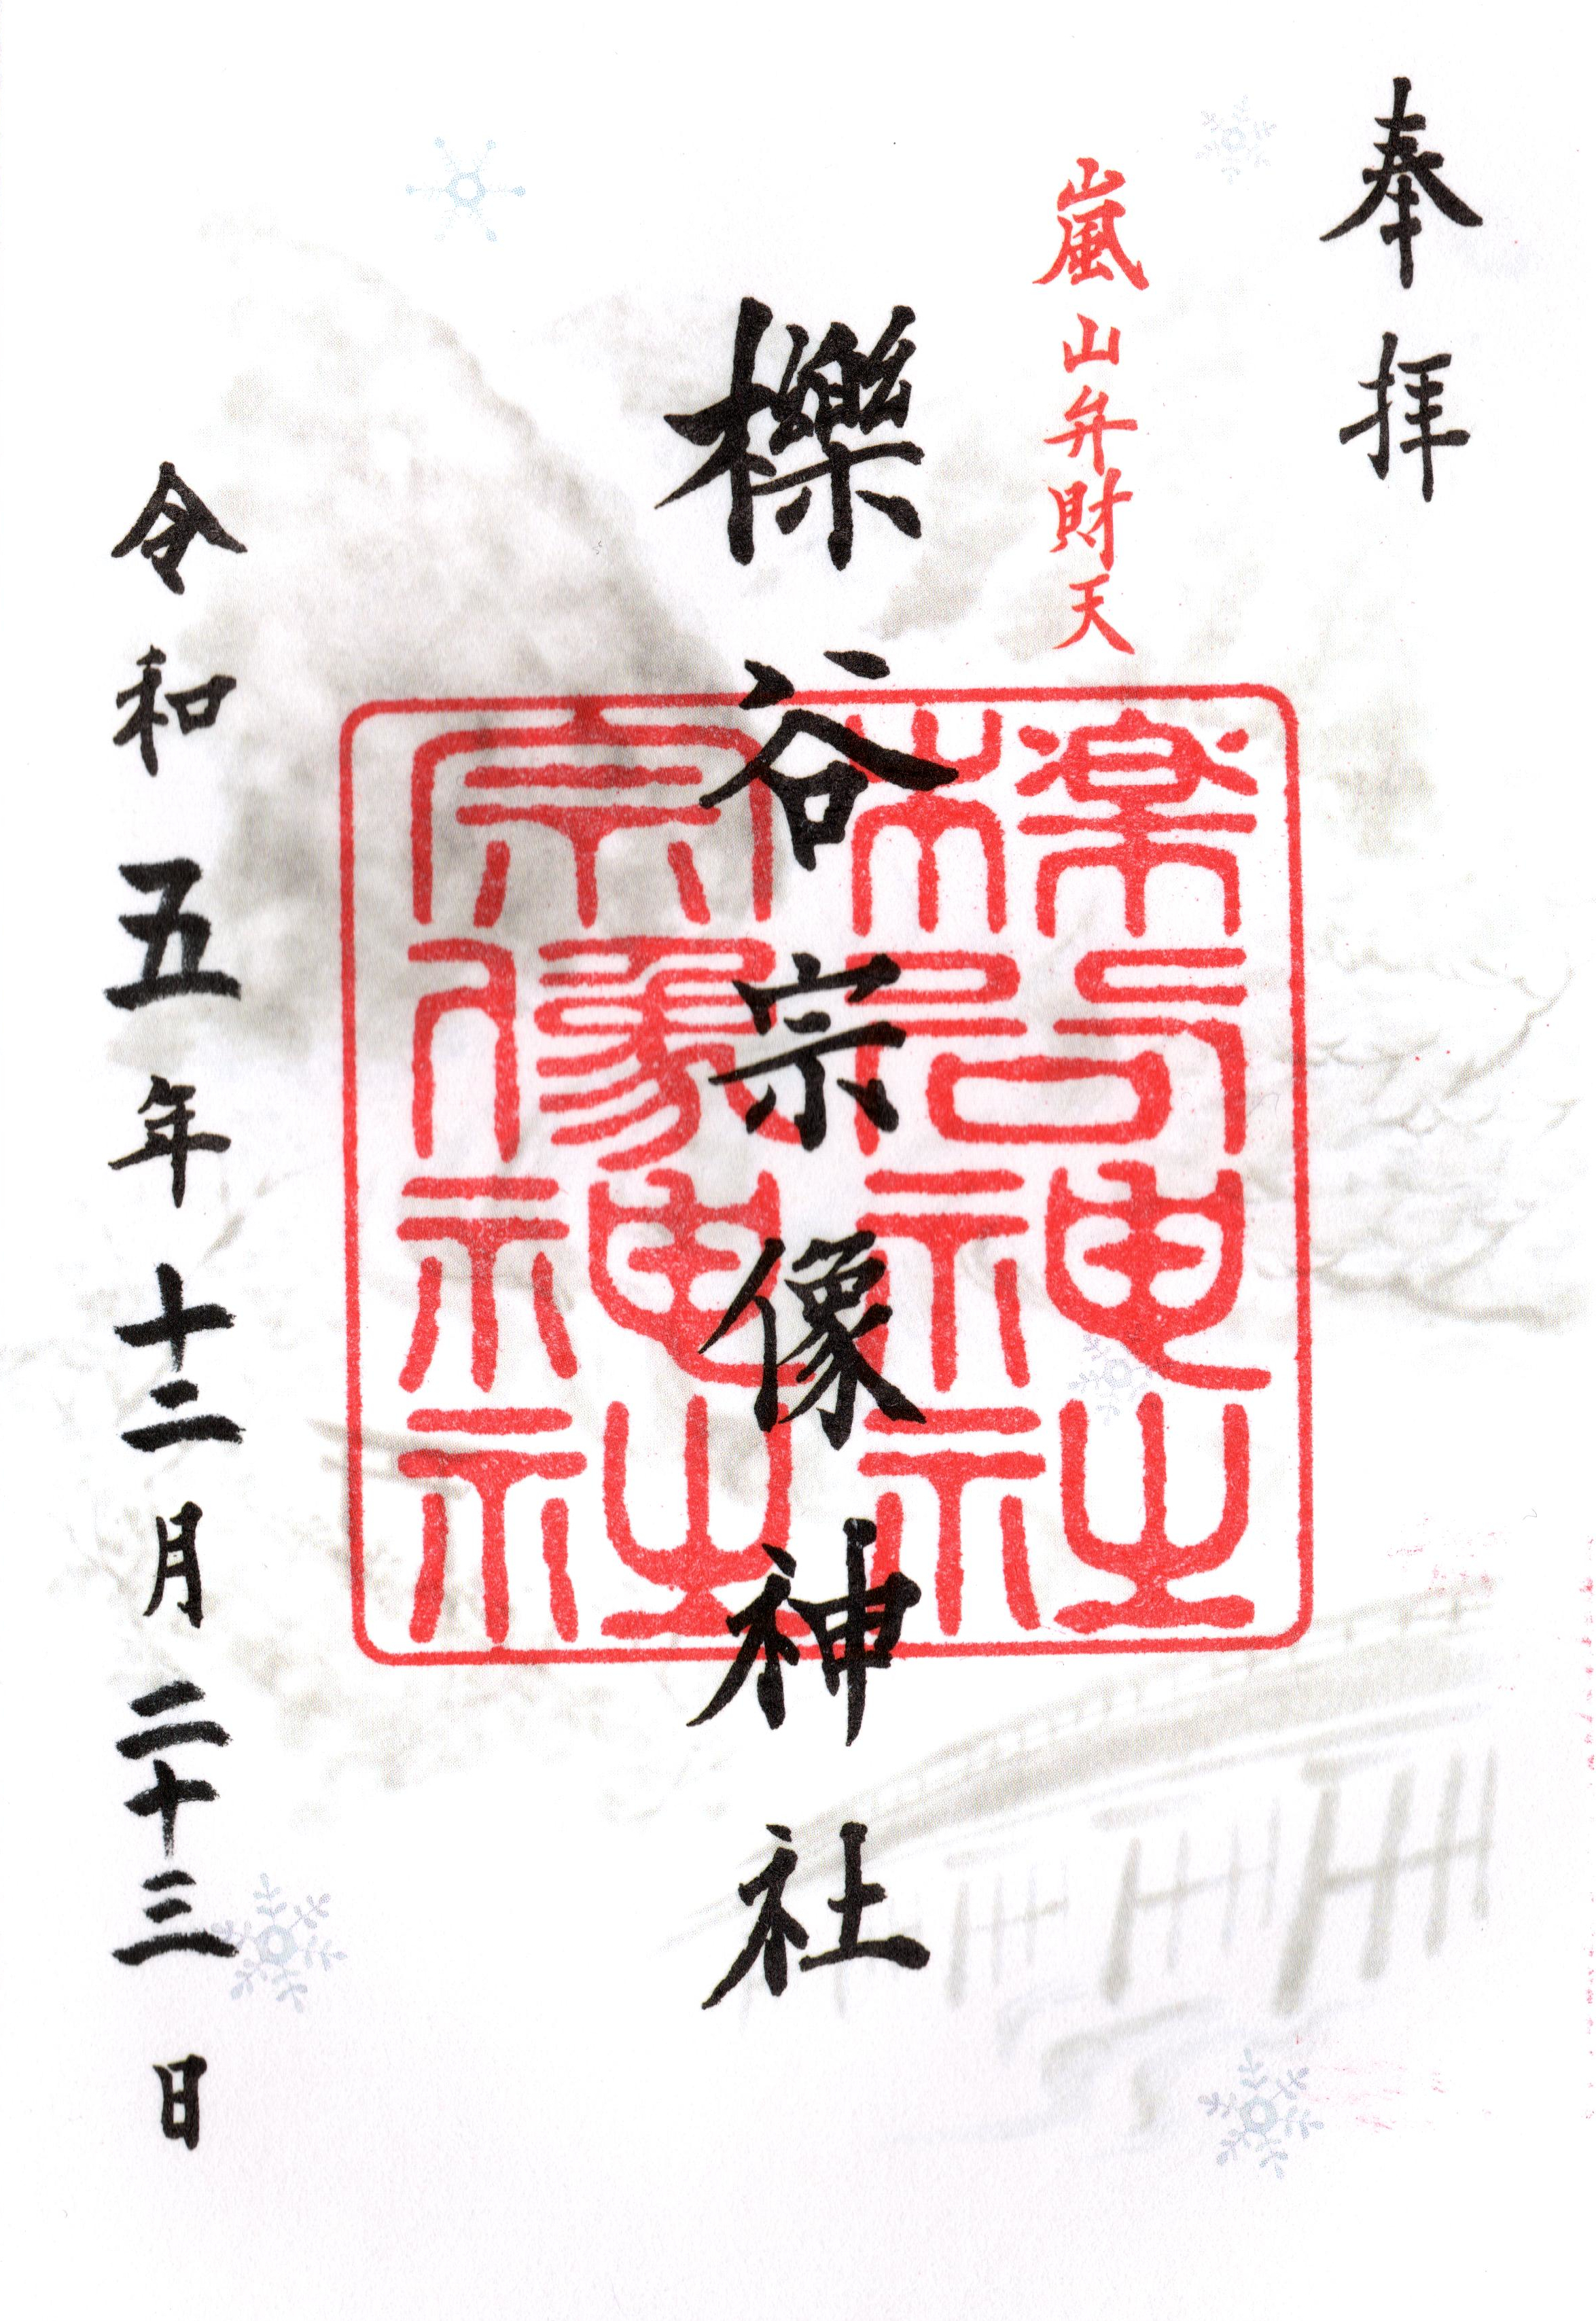 奉拝
嵐山弁財天
櫟谷宗像神社
櫟谷神社
宗像神社
令和五年十二月二十三日